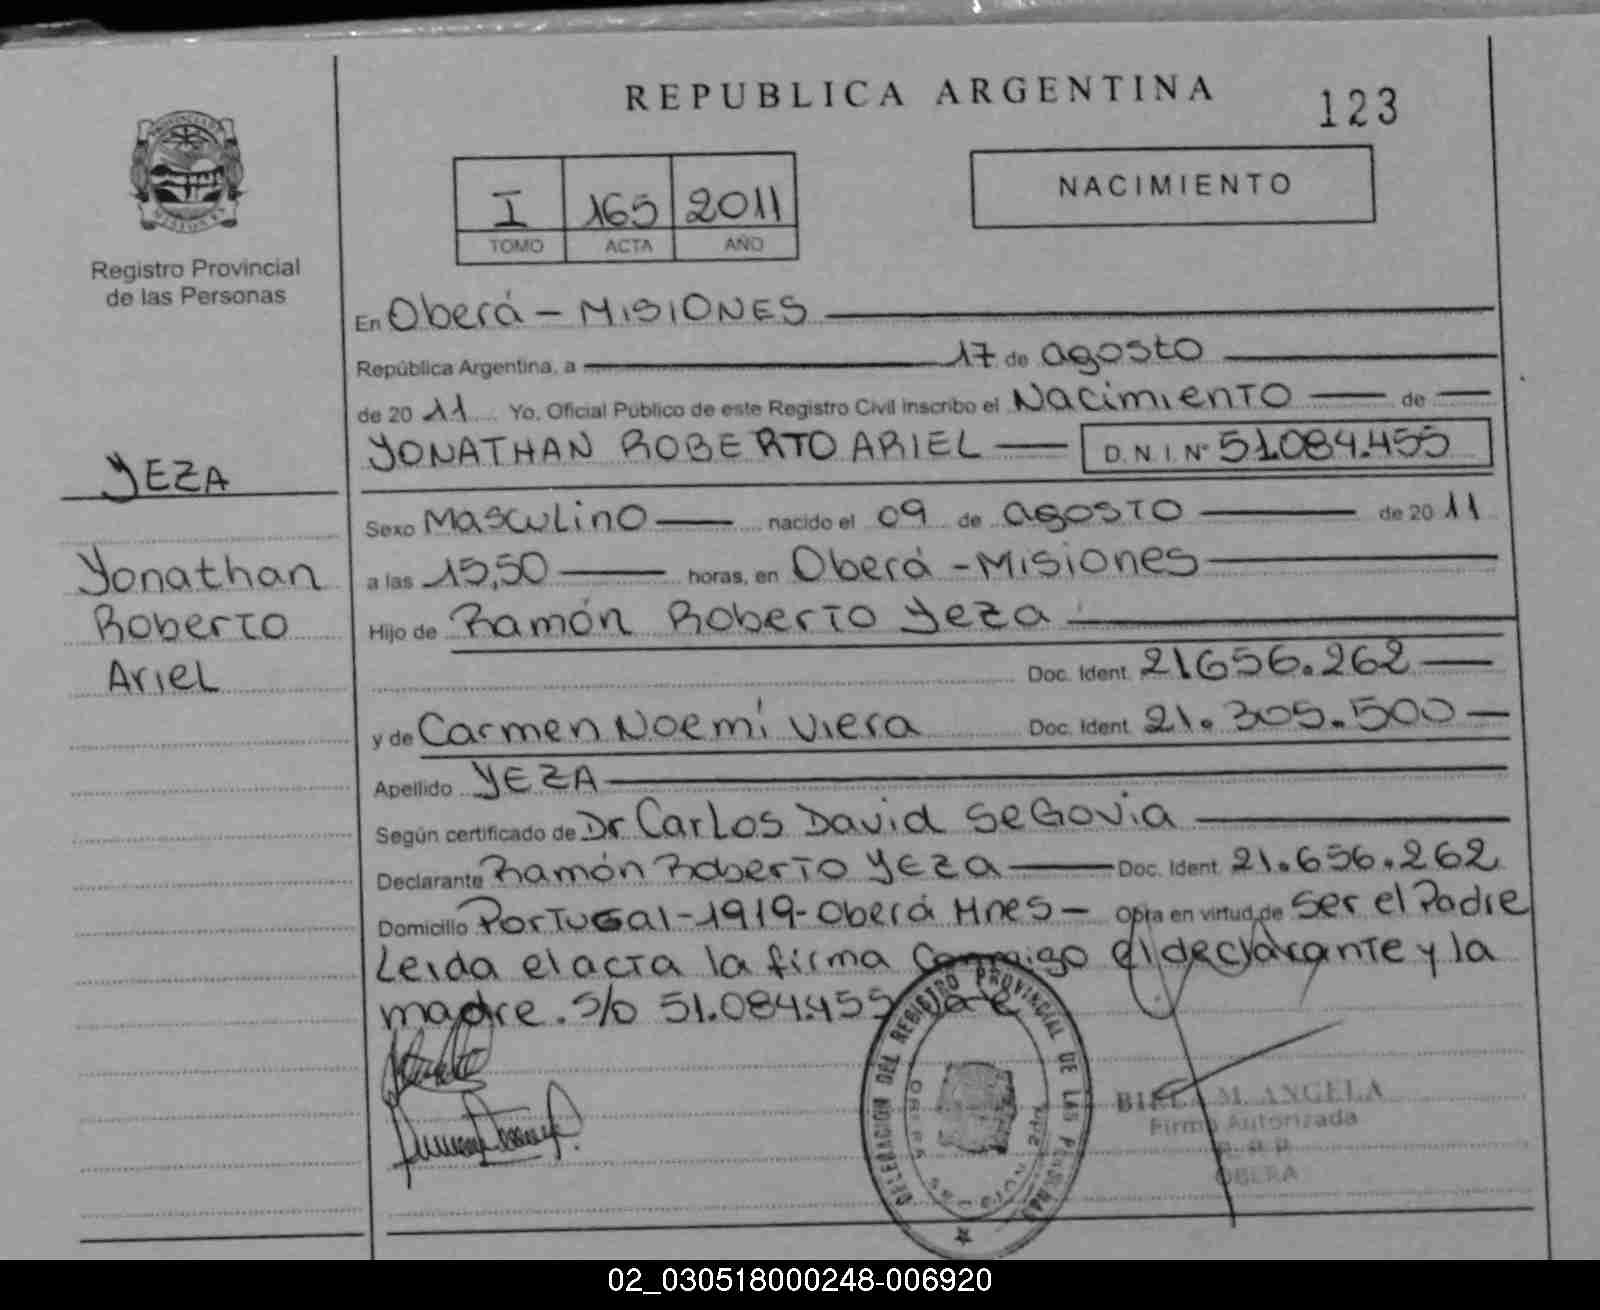 REPUBLICA ARGENTINA
123
I 165 2011
TOMO ACTA AÑO
NACIMIENTO
PROVINCIA DE
MISIONES
Registro Provincial
de las Personas
YEZA
Yonathan
Roberto
Ariel
En Oberá - MISIONES
República Argentina, a 17 de agosto
de 20 11 Yo, Oficial Público de este Registro Civil inscribo el Nacimiento de
YONATHAN ROBERTO ARIEL D.N.I. Nº 51.084.455
Sexo Masculino nacido el 09 de agosto de 20 11
a las 15,50 horas, en Oberá - Misiones
Hijo de Ramón Roberto Yeza
Doc. Ident. 21656.262
y de Carmen Noemí Viera Doc. Ident. 21.305.500
Apellido YEZA
Según certificado de Dr Carlos David Segovia
Declarante Ramón Roberto YEZA Doc. Ident. 21.656.262
Domicilio Portugal-1919-Oberá Mnes- Opta en virtud de ser el Padre
Leida el acta la firma Conmigo el declarante y la
madre. S/o 51.084.455
DELEGACION DEL REGISTRO PROVINCIAL DE LAS PERSONAS
OBERA
M. ANGELA
Firma Autorizada
OBERA
02_030518000248-006920